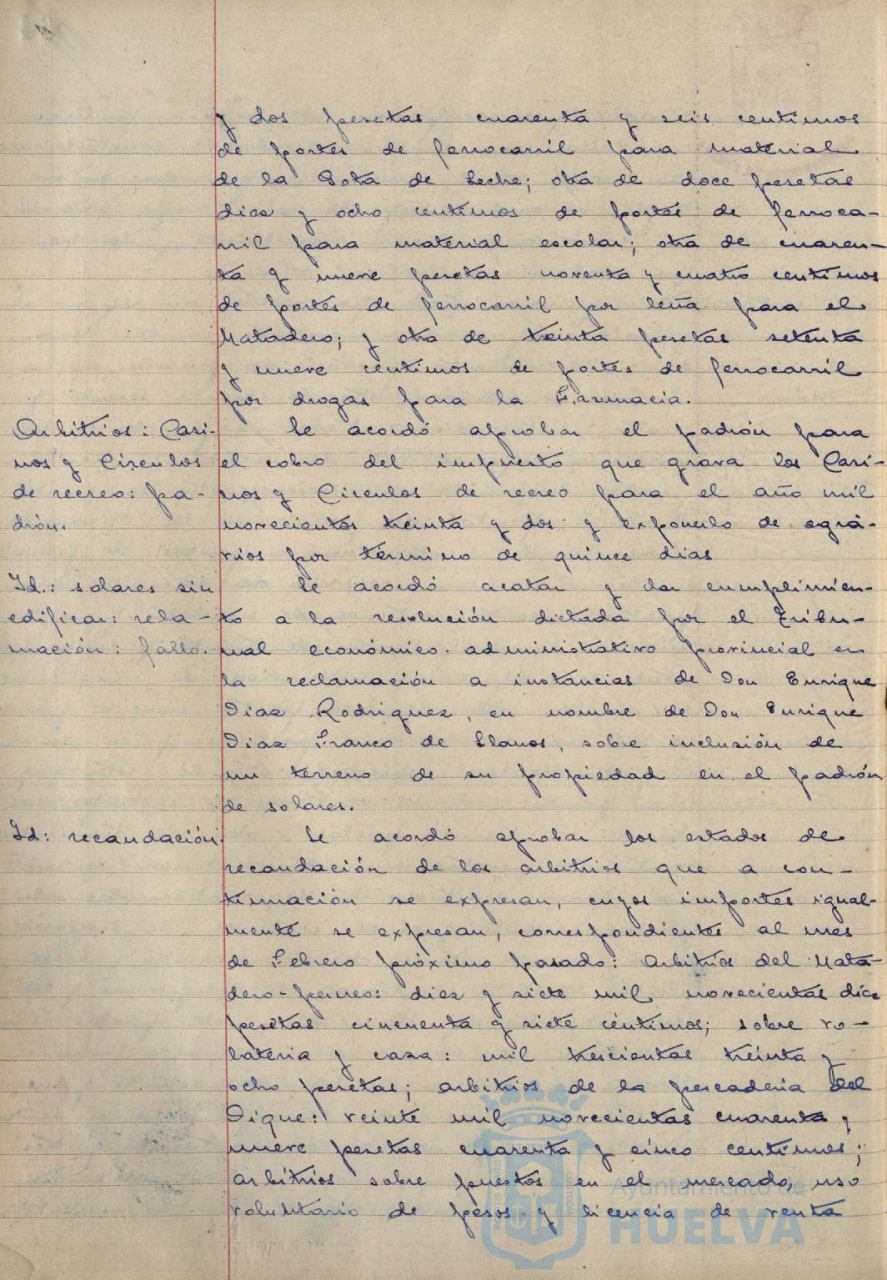 y dos pesetas cuarenta y seis centimos
de portes de ferrocarril para material
de la Gota de Leche; otra de doce pesetas
diez y ocho centimos de portes de ferroca-
rril para material escolar; otra de cuaren-
ta y nueve pesetas noventa y cuatro centimos
de portes de ferrocarril por leña para el
Matadero; y otra de treinta pesetas setenta
y nueve centimos de portes de ferrocarril
por drogas para la Farmacia.
Arbitrios: Casi-
nos y Circulos
de recreo: pa-
drón.
Se acordó aprobar el padrón para
el cobro del impuesto que grava los Casi-
nos y Circulos de recreo para el año mil
novecientos treinta y dos y exponerlo de agrá-
vios por término de quince dias
Id.: solares sin
edificar: recla-
mación: fallo.
Se acordó acatar y dar cumplimien-
to a la resolución dictada por el Tribu-
nal económico-administrativo provincial en
la reclamación a instancias de Don Enrique
Diaz Rodriguez, en nombre de Don Enrique
Diaz Franco de Llanos, sobre inclusión de
un terreno de su propiedad en el padrón
de solares.
Id: recaudación.
Se acordó aprobar los estados de
recaudación de los arbitrios que a con-
tinuación se expresan, cuyos importes igual-
mente se expresan, correspondientes al mes
de Febrero próximo pasado: Arbitrios del Mata-
dero-perneo: diez y siete mil novecientas diez
pesetas cincuenta y siete céntimos; sobre vo-
lateria y caza: mil trescientas treinta y
ocho pesetas; arbitrios de la pescaderia del
Dique: veinte mil novecientas cuarenta y
nueve pesetas cuarenta y cinco centimos;
arbitrios sobre puestos en el mercado, uso
voluntario de pesos y licencia de venta
Ayuntamiento de
HUELVA